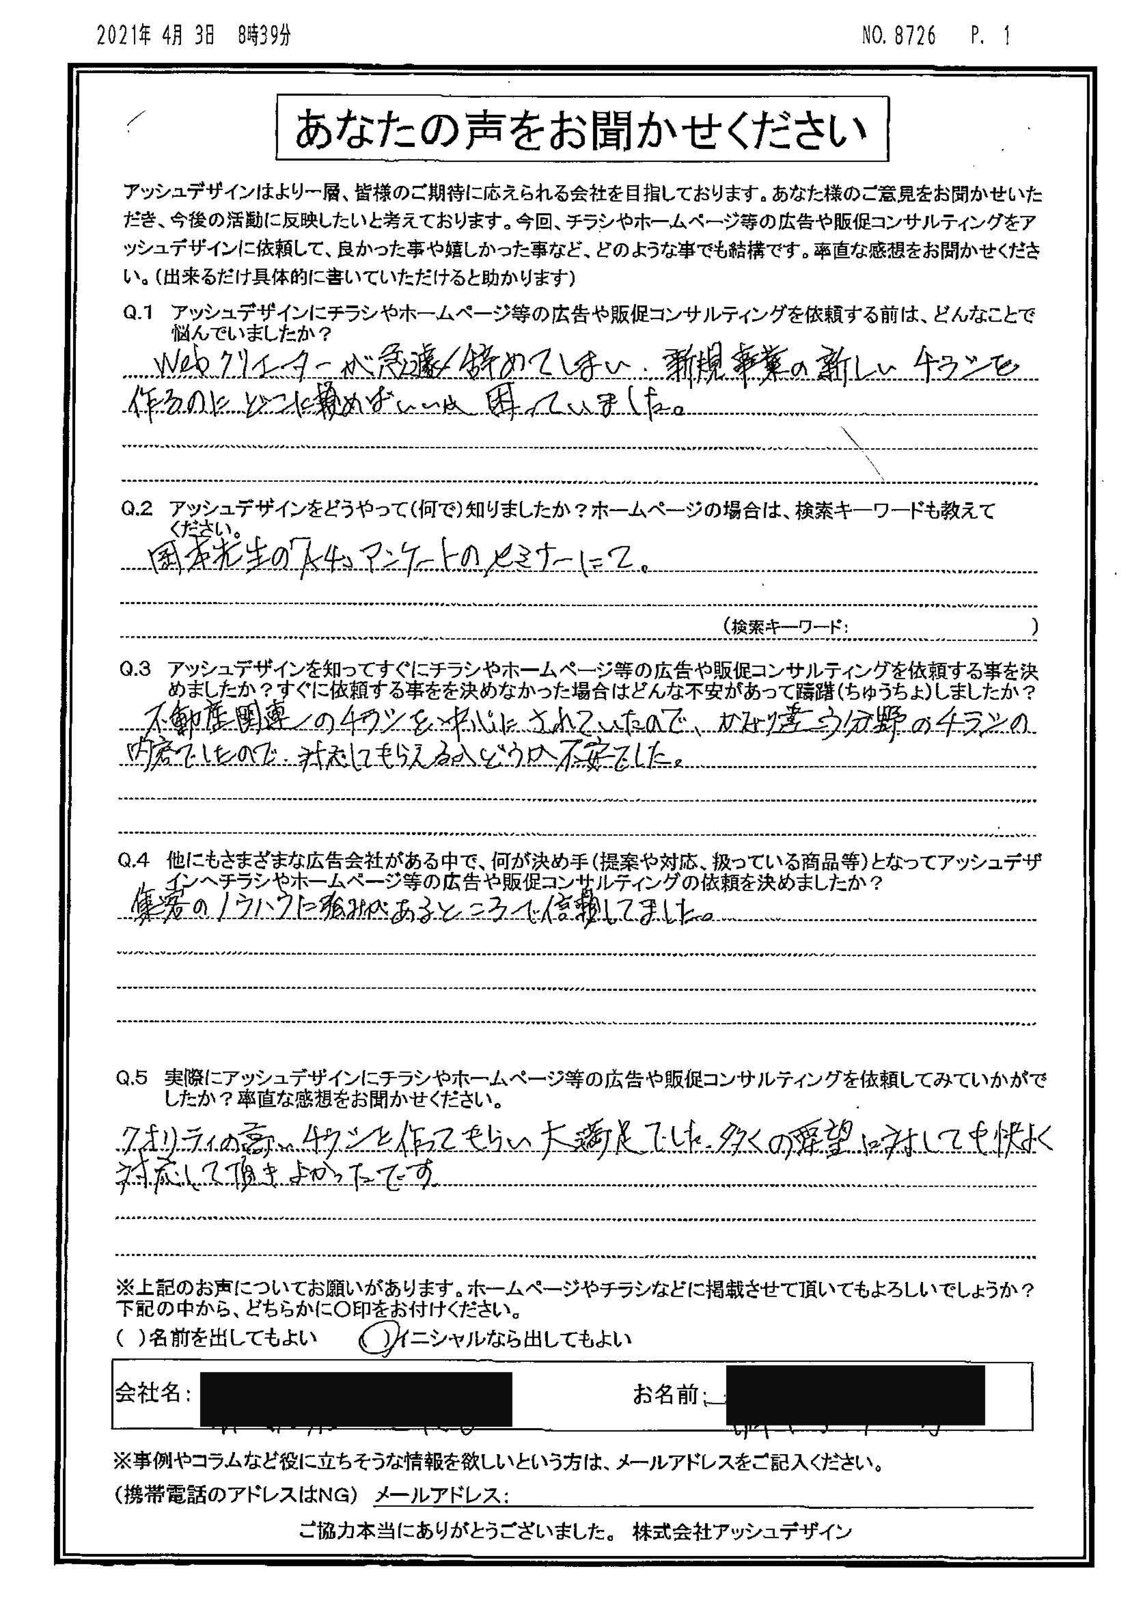 2021年 4月 3日 8時39分 NO. 8726 P. 1
あなたの声をお聞かせください
アッシュデザインはより一層、皆様のご期待に応えられる会社を目指しております。あなた様のご意見をお聞かせいた
だき、今後の活動に反映したいと考えております。今回、チラシやホームページ等の広告や販促コンサルティングをア
ッシュデザインに依頼して、良かった事や嬉しかった事など、どのような事でも結構です。率直な感想をお聞かせくださ
い。(出来るだけ具体的に書いていただけると助かります)
Q.1 アッシュデザインにチラシやホームページ等の広告や販促コンサルティングを依頼する前は、どんなことで
悩んでいましたか?
Webクリエーターが急遽辞めてしまい、新規事業の新しいチラシを
作るのにどこに頼めばいいか困っていました。
Q.2 アッシュデザインをどうやって(何で)知りましたか?ホームページの場合は、検索キーワードも教えて
ください。
岡本先生のアンケートのセミナーにて。
(検索キーワード: )
Q.3 アッシュデザインを知ってすぐにチラシやホームページ等の広告や販促コンサルティングを依頼する事を決
めましたか?すぐに依頼する事をを決めなかった場合はどんな不安があって躊躇(ちゅうちょ)しましたか?
不動産関連のチラシを中心にされていたので、かなり違う分野のチラシの
内容でしたので、対応してもらえるかどうか不安でした。
Q.4 他にもさまざまな広告会社がある中で、何が決め手(提案や対応、扱っている商品等)となってアッシュデザ
インへチラシやホームページ等の広告や販促コンサルティングの依頼を決めましたか?
集客のノウハウに強みがあるところで信頼してました。
Q.5 実際にアッシュデザインにチラシやホームページ等の広告や販促コンサルティングを依頼してみていかがで
したか?率直な感想をお聞かせください。
クオリティの高いチラシを作ってもらい大満足でした。多くの要望に対しても快よく
対応して頂きよかったです
※上記のお声についてお願いがあります。ホームページやチラシなどに掲載させて頂いてもよろしいでしょうか?
下記の中から、どちらかに○印をお付けください。
( )名前を出してもよい ( )イニシャルなら出してもよい
会社名: お名前:
※事例やコラムなど役に立ちそうな情報を欲しいという方は、メールアドレスをご記入ください。
(携帯電話のアドレスはNG) メールアドレス:
ご協力本当にありがとうございました。 株式会社アッシュデザイン